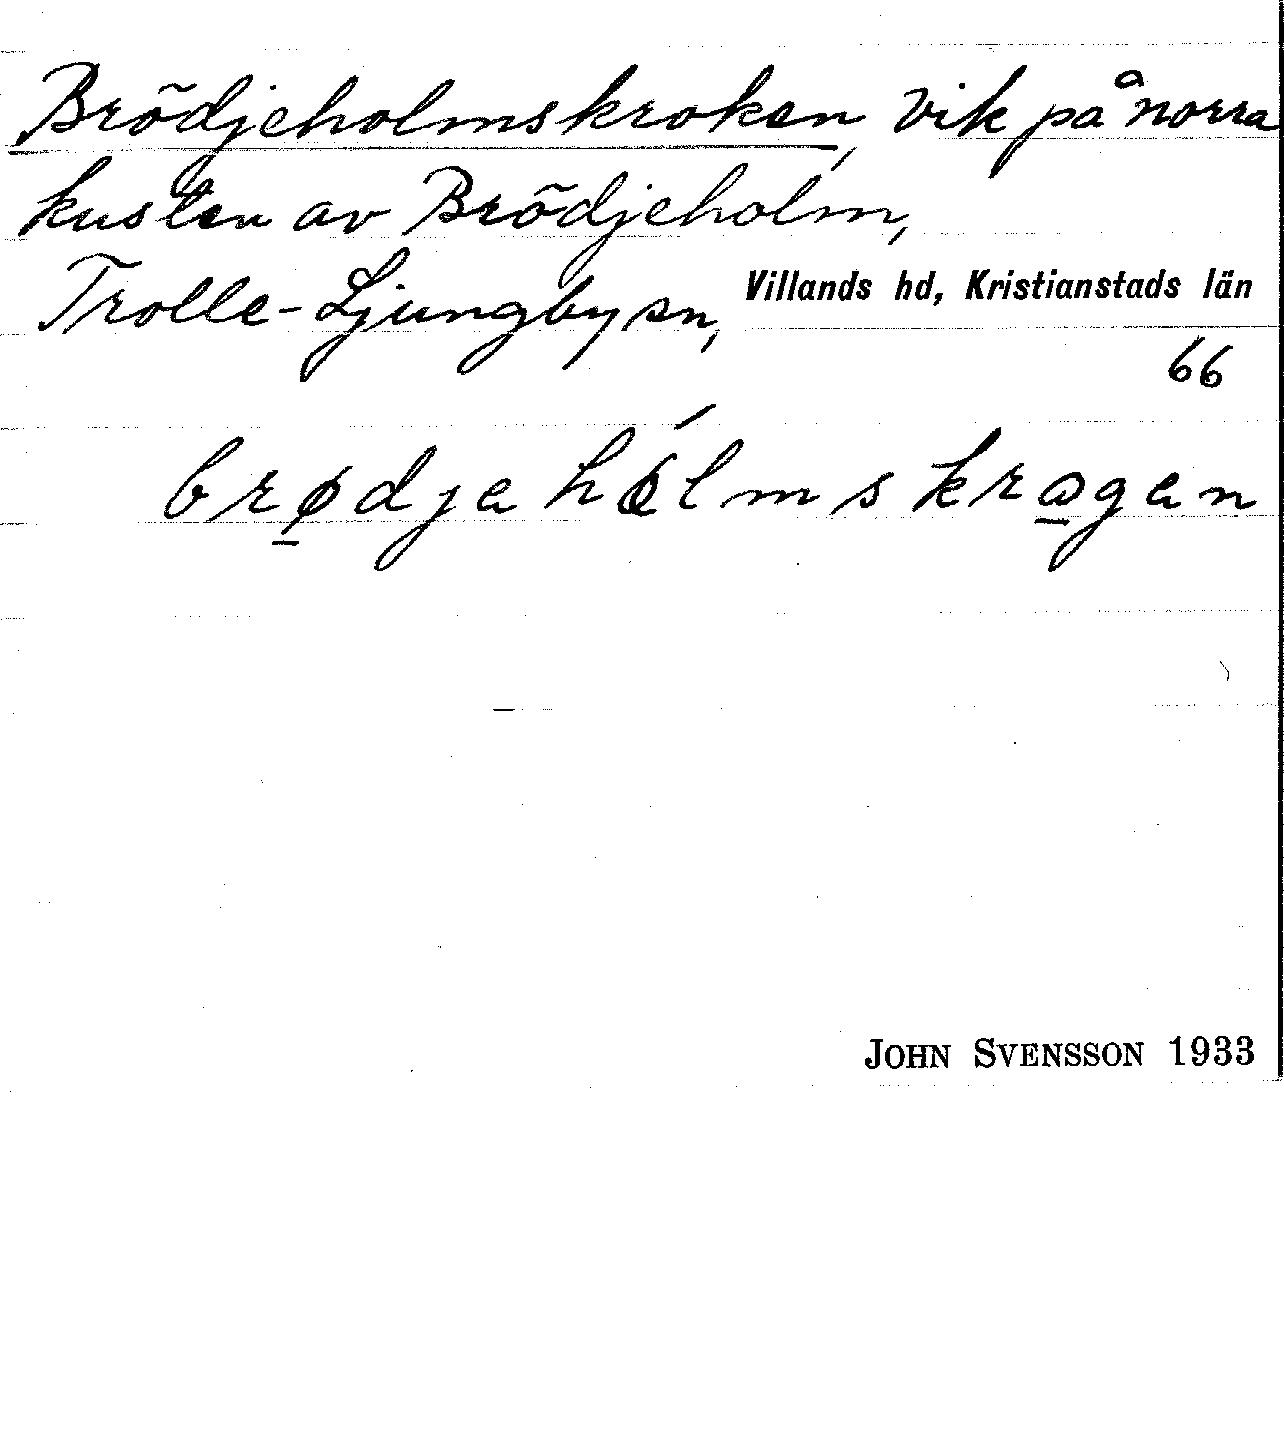 Brödjeholmskroken, vik på norra
kusten av Brödjeholm,
Trolle-Ljungby sn, Villands hd, Kristianstads län
66
brø̱djehólmskro̱gen
JOHN SVENSSON 1933